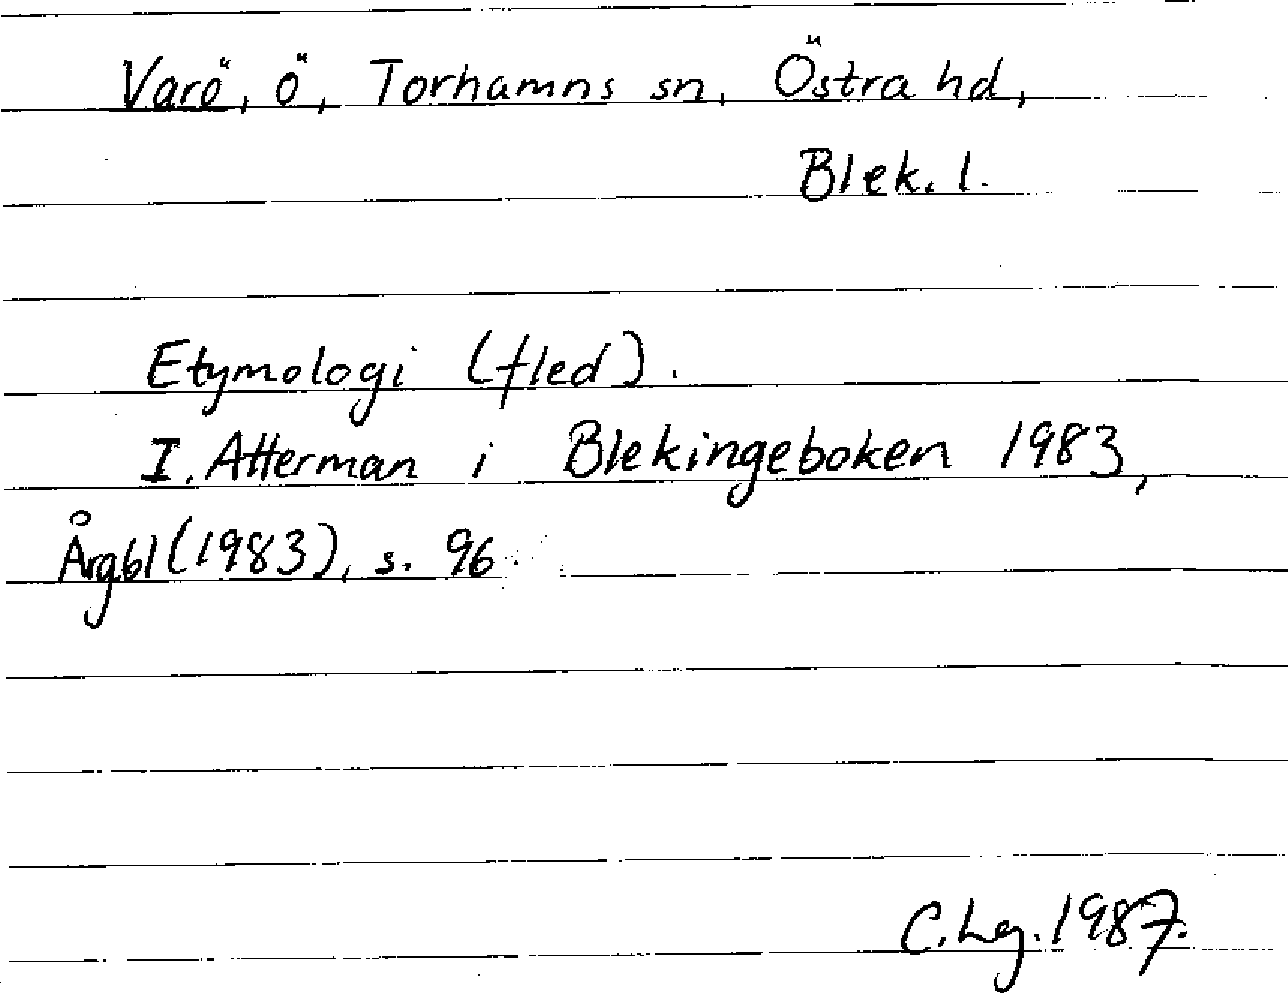 Varö, ö, Torhamns sn, Östra hd,
Blek. l.
Etymologi (fled).
I. Atterman i Blekingeboken 1983,
Årgbl (1983), s. 96
C. Lg. 1987.